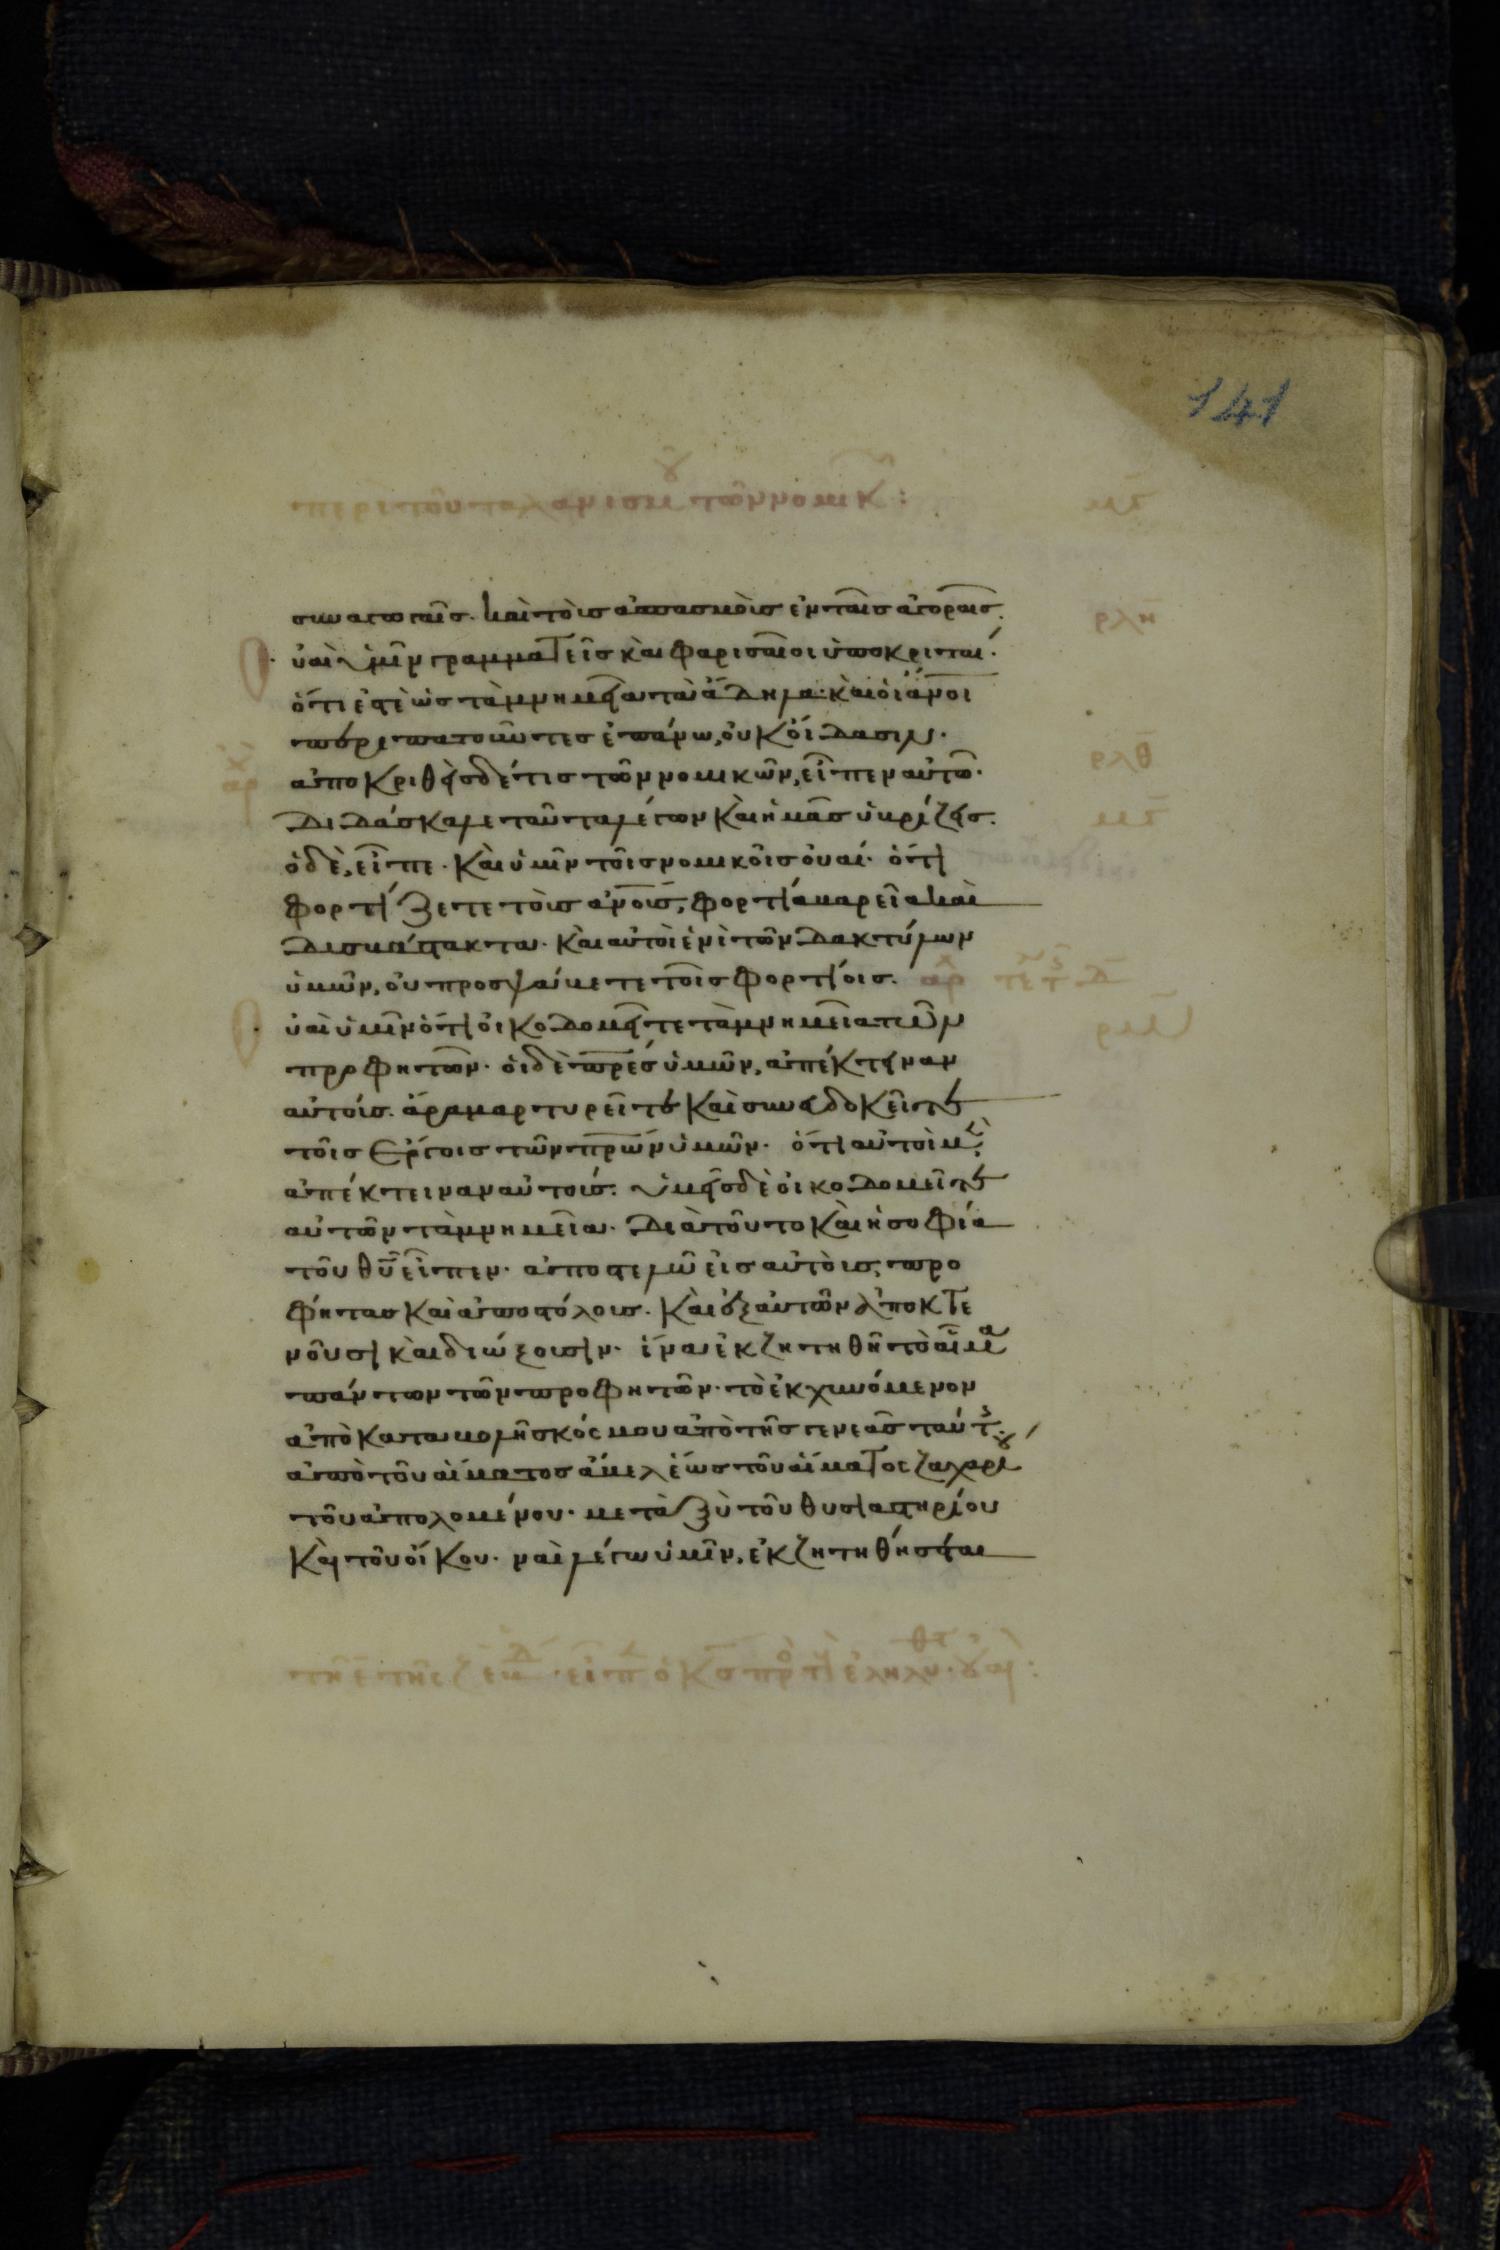 141
περὶ τοῦ ταλανισμοῦ τῶν νομικ:
συναγωγαῖς. καὶ τοὺς ἀσπασμοὺς ἐν ταῖς ἀγοραῖς.
ὐαὶ ὑμῖν γραμματεῖς καὶ φαρισαῖοι ὑποκριταί.
ὅτι ἐστὲ ὡς τὰ μνημεῖα τὰ ἄδηλα. καὶ οἱ ἄνοι
περιπατοῦντες ἐπάνω, οὐκ οἴδασιν.
ἀποκριθεὶς δέ τις τῶν νομικῶν, εἶπεν αὐτῶ.
διδάσκαλε ταῦτα λέγων καὶ ἡμᾶς ὑβρίζεις.
ὁ δὲ, εἶπε. καὶ ὑμῖν τοῖς νομικοῖς οὐαί. ὅτι
φορτίζετε τοὺς ἀνοις, φορτία βαρεῖα καὶ
δυσβάστακτα. καὶ αὐτοὶ ἑνὶ τῶν δακτύλων
ὑμῶν, οὐ προσψαύετε τοῖς φορτίοις.
ὐαὶ ὑμῖν ὅτι οἰκοδομεῖτε τὰ μνημεῖα τῶν
προφητῶν. οἱ δὲ πρες ὑμῶν, ἀπέκτειναν
αὐτούς. ἄρα μαρτυρεῖτε καὶ συνευδοκεῖτε
τοῖς ἔργοις τῶν πρων ὑμῶν. ὅτι αὐτοὶ μὲν
ἀπέκτειναν αὐτούς. ὑμεῖς δὲ οἰκοδομεῖτε
αὐτῶν τὰ μνημεῖα. διὰ τοῦτο καὶ ἡ σοφία
τοῦ θυ εἶπεν. ἀποστελῶ εἰς αὐτοὺς, προ
φήτας καὶ ἀποστόλους. καὶ ἐξ αὐτῶν ἀποκτε
νοῦσι καὶ διώξουσιν. ἵνα ἐκζητηθῆ τὸ αἷμα
πάντων τῶν προφητῶν. τὸ ἐκχυνόμενον
ἀπὸ καταβολῆς κόσμου ἀπὸ τῆς γενεᾶς ταύτης.
ἀπὸ τοῦ αἵματος ἄβελ ἕως τοῦ αἵματος ζαχαρίου
τοῦ ἀπολομένου. μεταξὺ τοῦ θυσιαστηρίου
καὶ τοῦ οἴκου. ναὶ λέγω ὑμῖν, ἐκζητηθήσεται